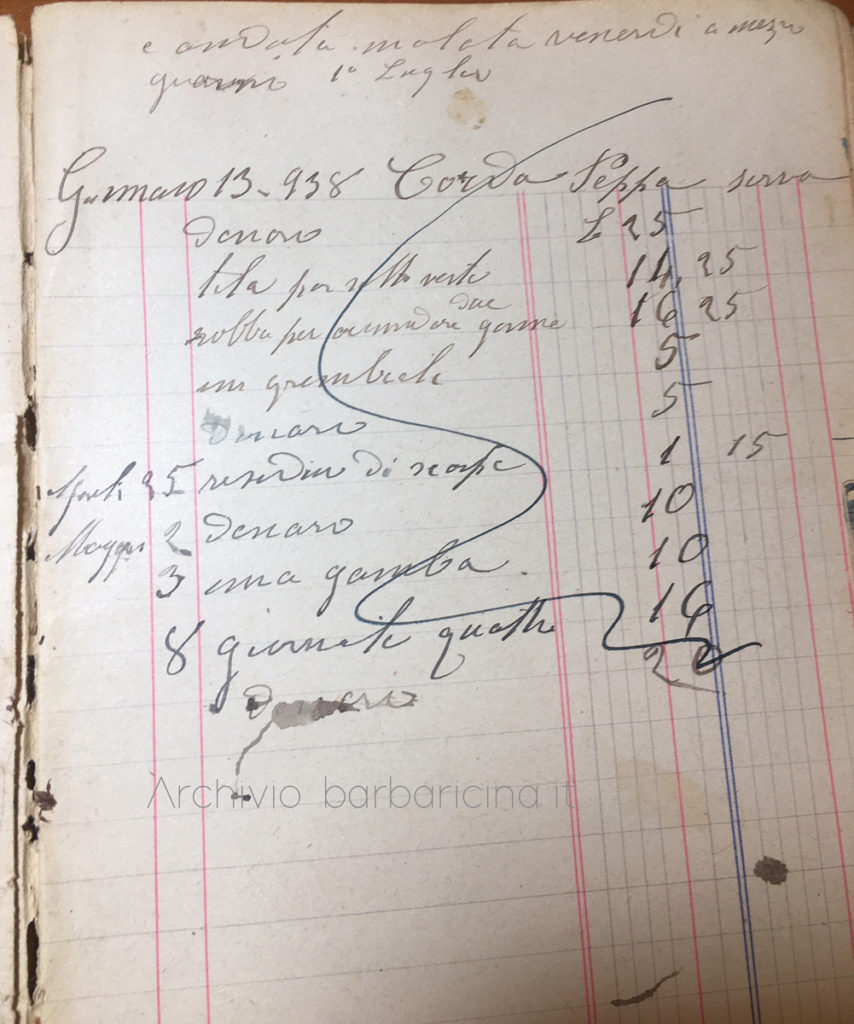 e andata malata venerdi a mezzo
1° Luglio
Gennaio 13 - 938 Corda Peppa serva
denaro L 25
tela per sotto veste 14, 25
robba per due gonne 16 25
un grembiele 5
Denaro 5
25 di scarpe 1 15
Maggio 2 Denaro 10
3 una gamba 10
8 giornate quattro 16
denaro 20
Archivio barbaricina.it